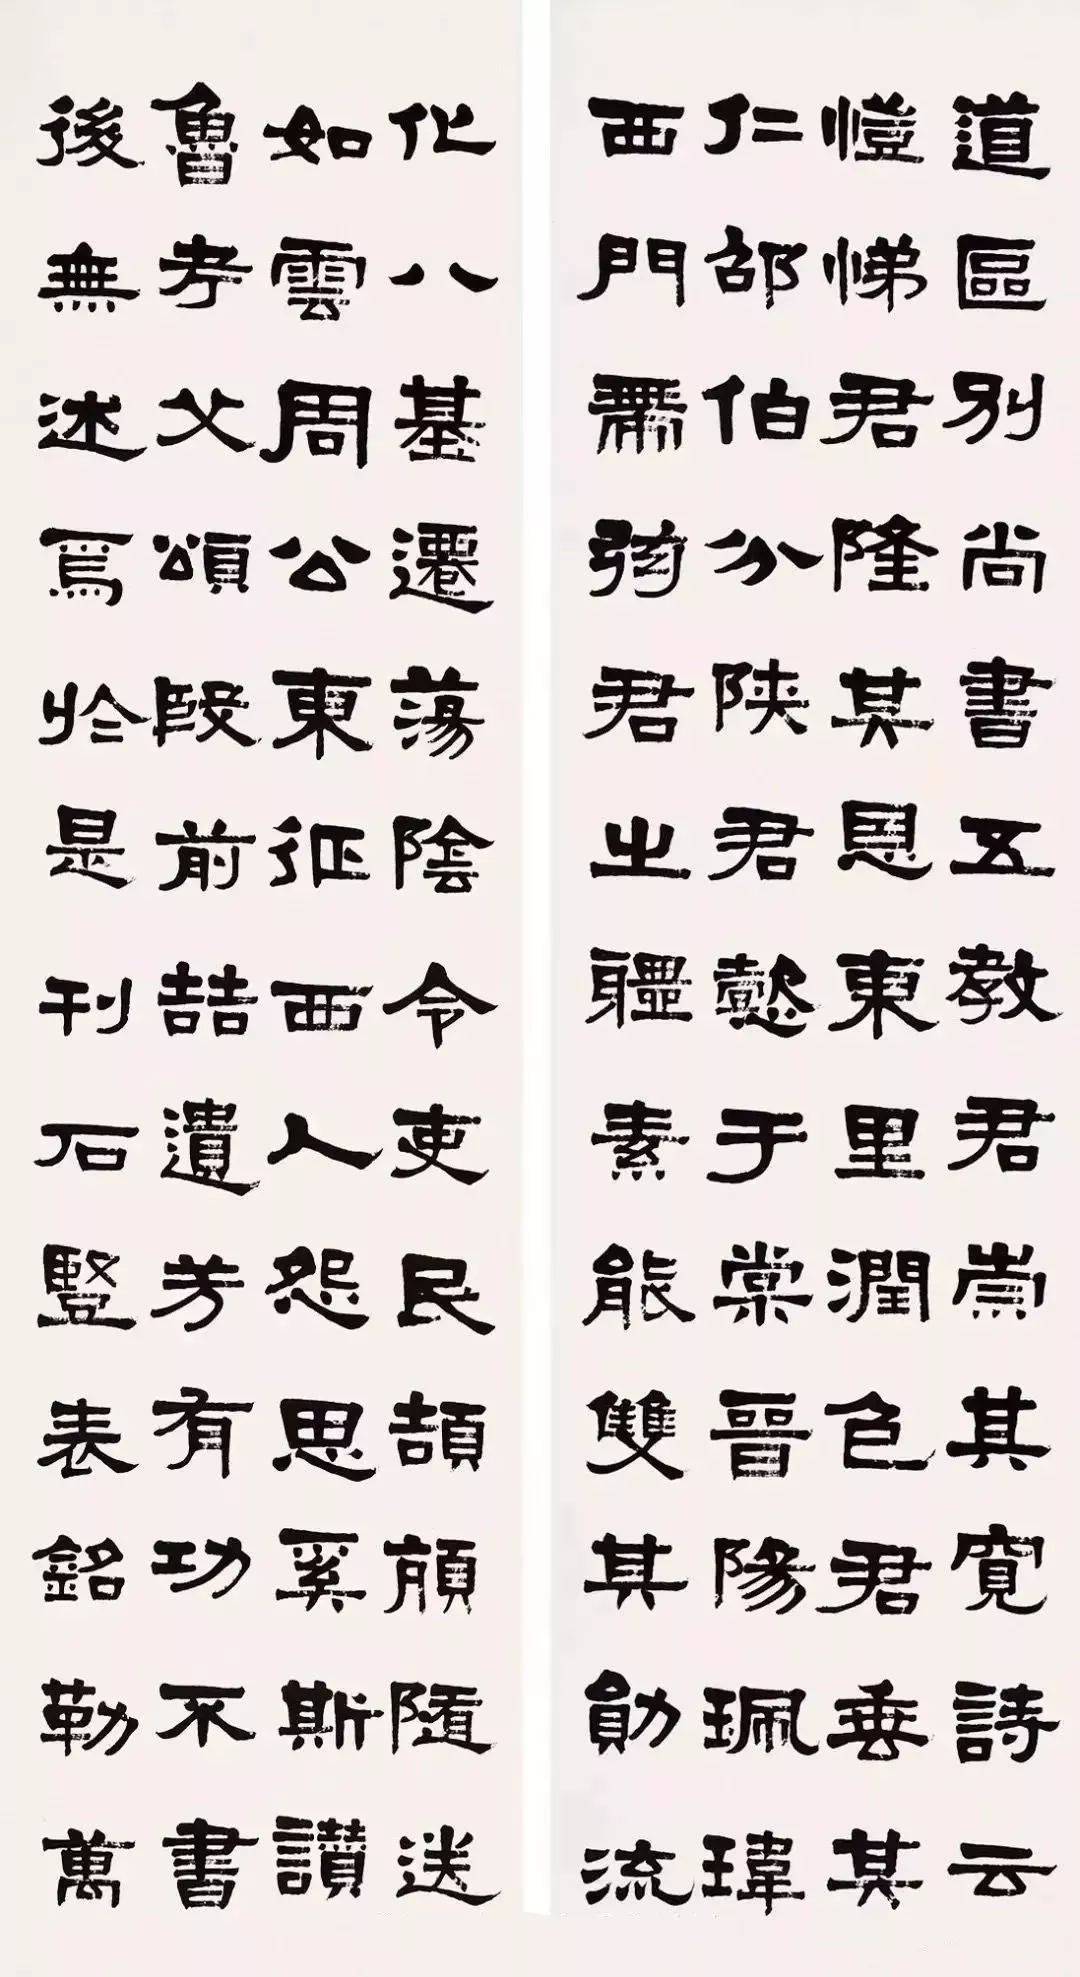 道區別尚書五教君崇其寬詩云
愷悌君隆其恩東里潤色君垂其
仁邵伯分陕君懿于棠晉陽珮瑋
西門帶弦君之軆素能雙其勛流
化八基遷蕩陰令吏民頡頏隨送
如雲周公東征西人怨思奚斯讃
魯考父頌殷前喆遺芳有功不書
後無述焉於是刊石豎表銘勒萬